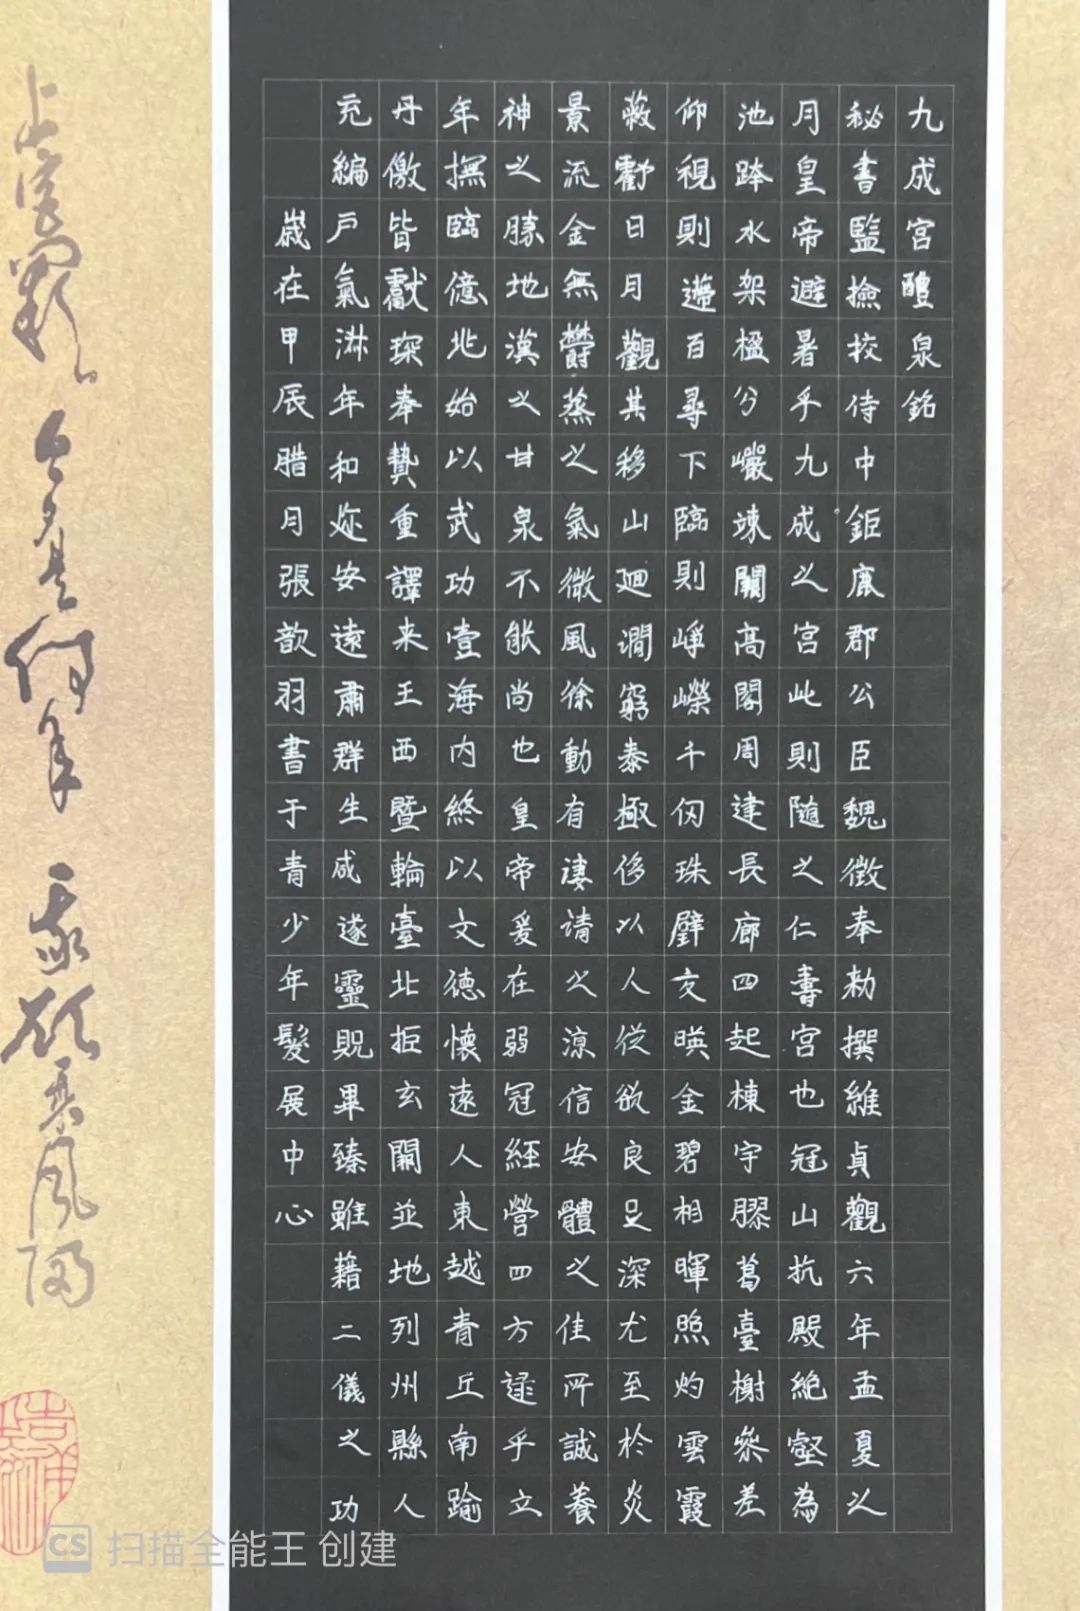 九成宮醴泉銘
秘書監撿挍侍中鉅鹿郡公臣魏徵奉勅撰維貞觀六年孟夏之
月皇帝避暑乎九成之宮此則隨之仁壽宮也冠山抗殿絶壑為
池跨水架楹分巖竦闕高閣周建長廊四起棟宇膠葛臺榭參差
仰視則遰百尋下臨則崢嶸千仞珠璧交暎金碧相暉照灼雲霞
蔽虧日月觀其移山迴澗窮泰極侈以人從欲良足深尤至於炎
景流金無鬱蒸之氣微風徐動有凄清之涼信安體之佳所誠養
神之勝地漢之甘泉不能尚也皇帝爰在弱冠經營四方逮乎立
年撫臨億兆始以武功壹海内終以文德懷遠人東越青丘南踰
丹儌皆獻琛奉贄重譯来王西暨輪臺北拒玄闕並地列州縣人
充編戶氣淋年和迩安遠肅群生咸遂靈貺畢臻雖藉二儀之功
歲在甲辰腊月張歆羽書于青少年髮展中心
扫描全能王 创建